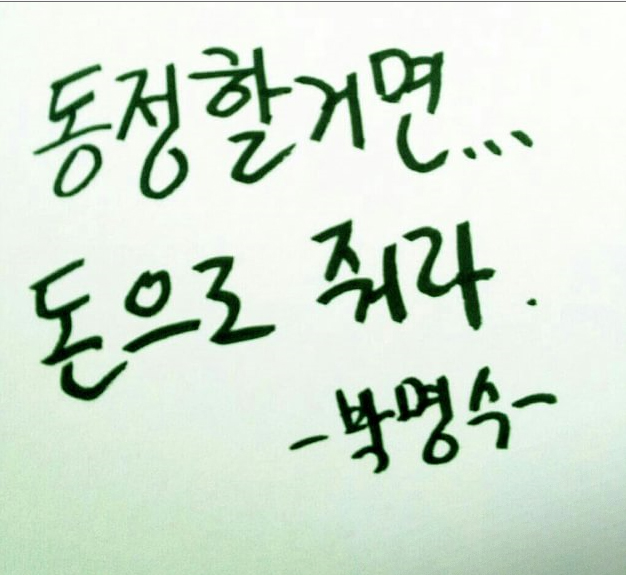 동정할거면...
돈으로 줘라.
-박명수-